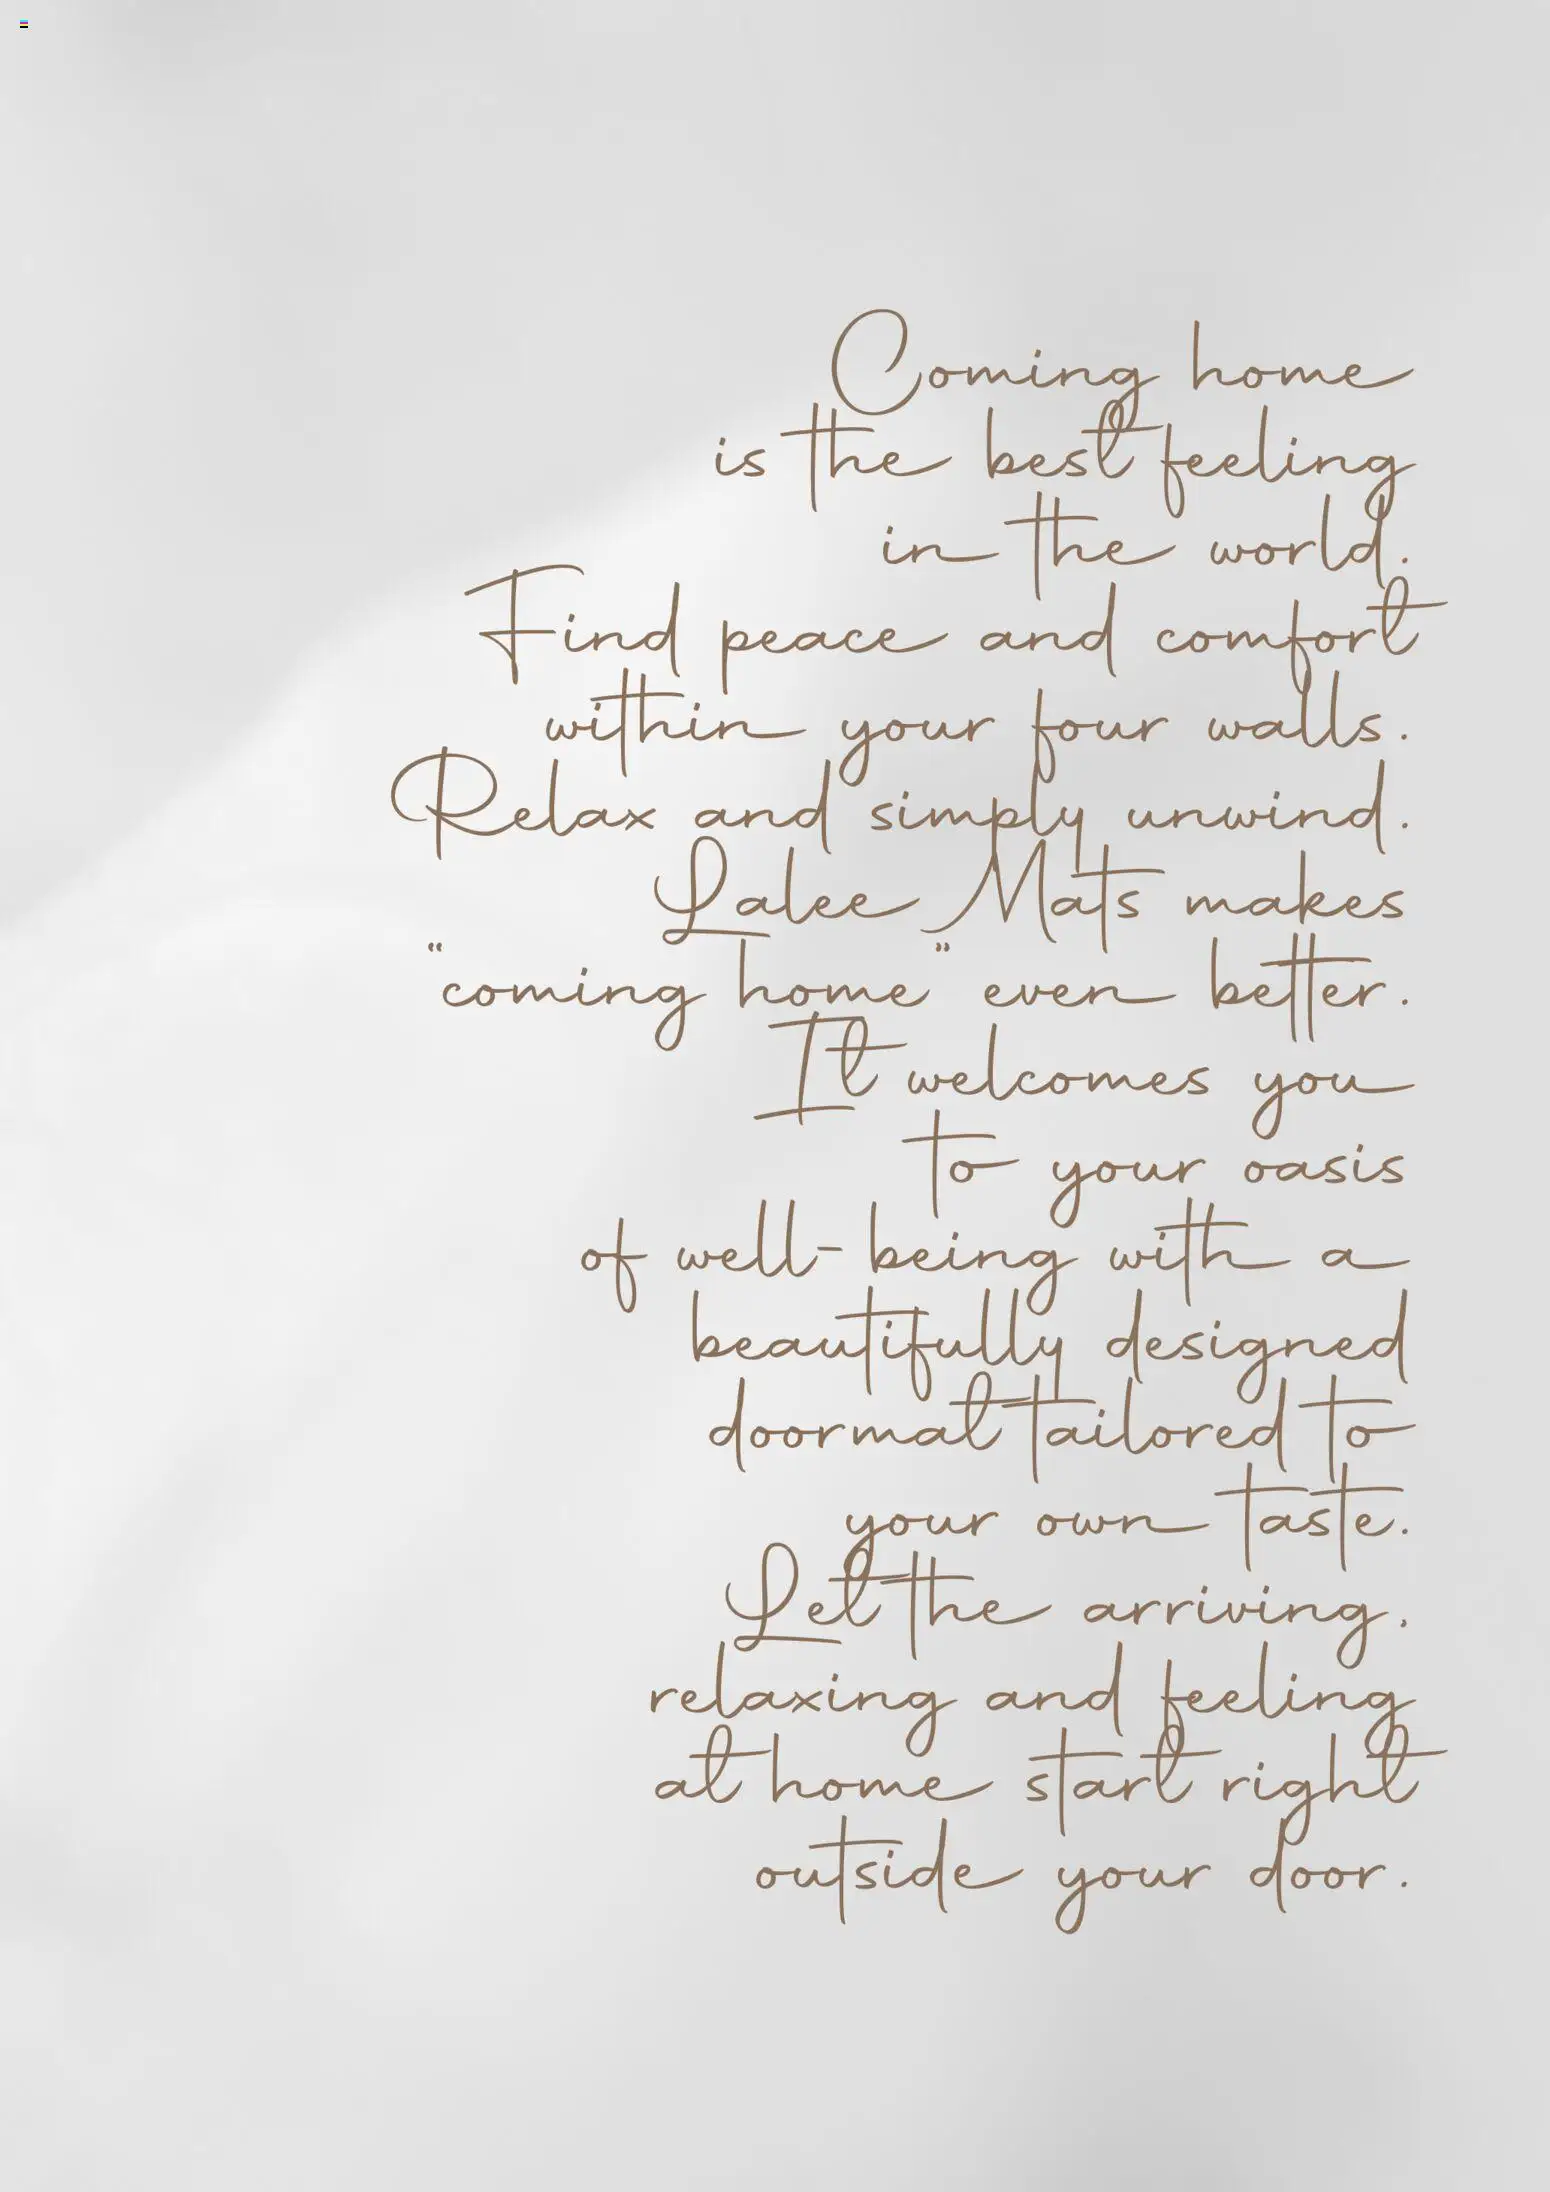 Coming home
is the best feeling
in the world.
Find peace and comfort
within your four walls.
Relax and simply unwind.
Lalee Mats makes
“coming home” even better.
It welcomes you
to your oasis
of well-being with a
beautifully designed
doormat tailored to
your own taste.
Let the arriving,
relaxing and feeling
at home start right
outside your door.